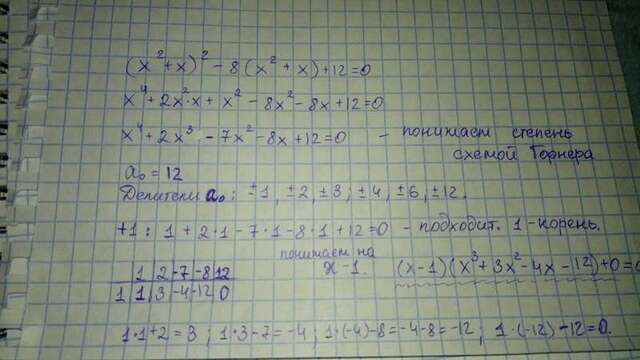 (x²+x)² - 8(x²+x)+12=0
x⁴+2x²·x+x² - 8x² - 8x+12=0
x⁴+2x³ - 7x² - 8x+12=0 - понижаем степень
схемой Горнера
a₀ = 12
Делители a₀: ±1, ±2, ±3, ±4, ±6, ±12.
+1: 1+2·1-7·1-8·1+12=0 - подходит. 1-корень.
понижаем на
x-1. (x-1)(x³+3x²-4x-12)+0=0
1 2 -7 -8 12
1 1 3 -4 -12 0
1·1+2=3; 1·3-7=-4; 1·(-4)-8=-4-8=-12; 1·(-12)+12=0.